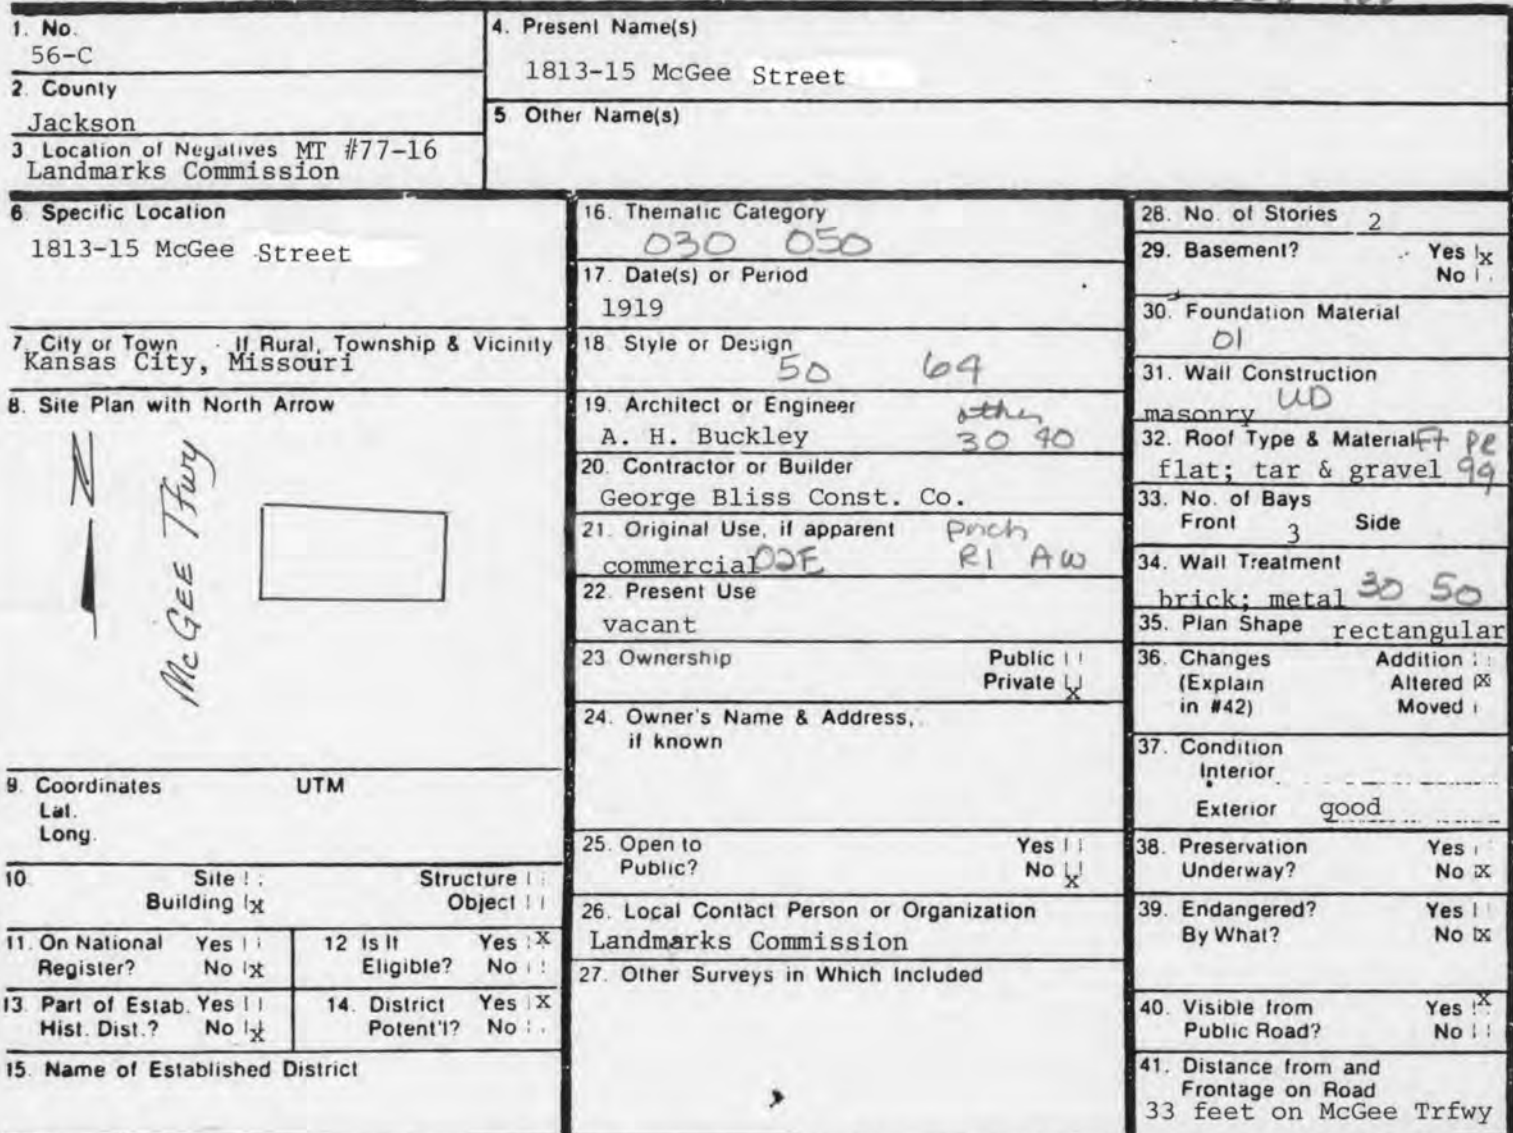 1. No.
56-C
2. County
Jackson
3 Location of Negatives MT #77-16
Landmarks Commission
4. Present Name(s)
1813-15 McGee Street
5 Other Name(s)
6. Specific Location
1813-15 McGee Street
7. City or Town If Rural, Township & Vicinity
Kansas City, Missouri
8. Site Plan with North Arrow
N
McGEE Tfwy
9. Coordinates UTM
Lat.
Long.
10. Site Structure
Building x Object
11. On National Yes
Register? No x
12 Is It Yes X
Eligible? No
13. Part of Estab. Yes
Hist. Dist.? No x
14. District Yes X
Potent'l? No
15. Name of Established District
16. Thematic Category
030 050
17. Date(s) or Period
1919
18. Style or Design
50 64
19. Architect or Engineer other
A. H. Buckley 30 40
20. Contractor or Builder
George Bliss Const. Co.
21. Original Use, if apparent Porch
commercial 02E R1 AW
22. Present Use
vacant
23 Ownership Public
Private x
24. Owner's Name & Address,
if known
25. Open to Yes
Public? No x
26. Local Contact Person or Organization
Landmarks Commission
27. Other Surveys in Which Included
28. No. of Stories 2
29. Basement? Yes x
No
30. Foundation Material
01
31. Wall Construction
masonry UD
32. Roof Type & Material Ft PE
flat; tar & gravel 99
33. No. of Bays
Front 3 Side
34. Wall Treatment
brick; metal 30 50
35. Plan Shape rectangular
36. Changes Addition
(Explain Altered X
in #42) Moved
37. Condition
Interior
Exterior good
38. Preservation Yes
Underway? No X
39. Endangered? Yes
By What? No X
40. Visible from Yes X
Public Road? No
41. Distance from and
Frontage on Road
33 feet on McGee Trfwy